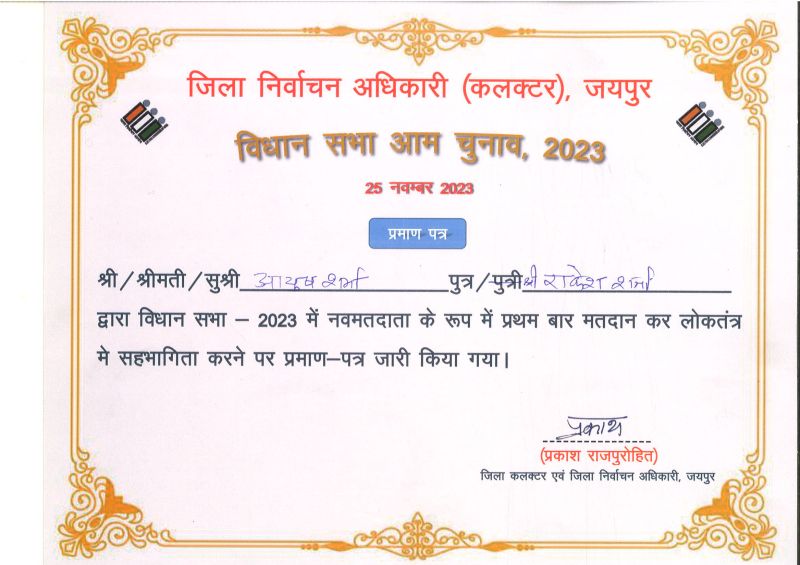 जिला निर्वाचन अधिकारी (कलक्टर), जयपुर
विधान सभा आम चुनाव, 2023
25 नवम्बर 2023
प्रमाण पत्र
श्री/श्रीमती/सुश्री आयुष शर्मा पुत्र/पुत्री श्री राकेश शर्मा
द्वारा विधान सभा – 2023 में नवमतदाता के रूप में प्रथम बार मतदान कर लोकतंत्र
मे सहभागिता करने पर प्रमाण–पत्र जारी किया गया।
प्रकाश
(प्रकाश राजपुरोहित)
जिला कलक्टर एवं जिला निर्वाचन अधिकारी, जयपुर